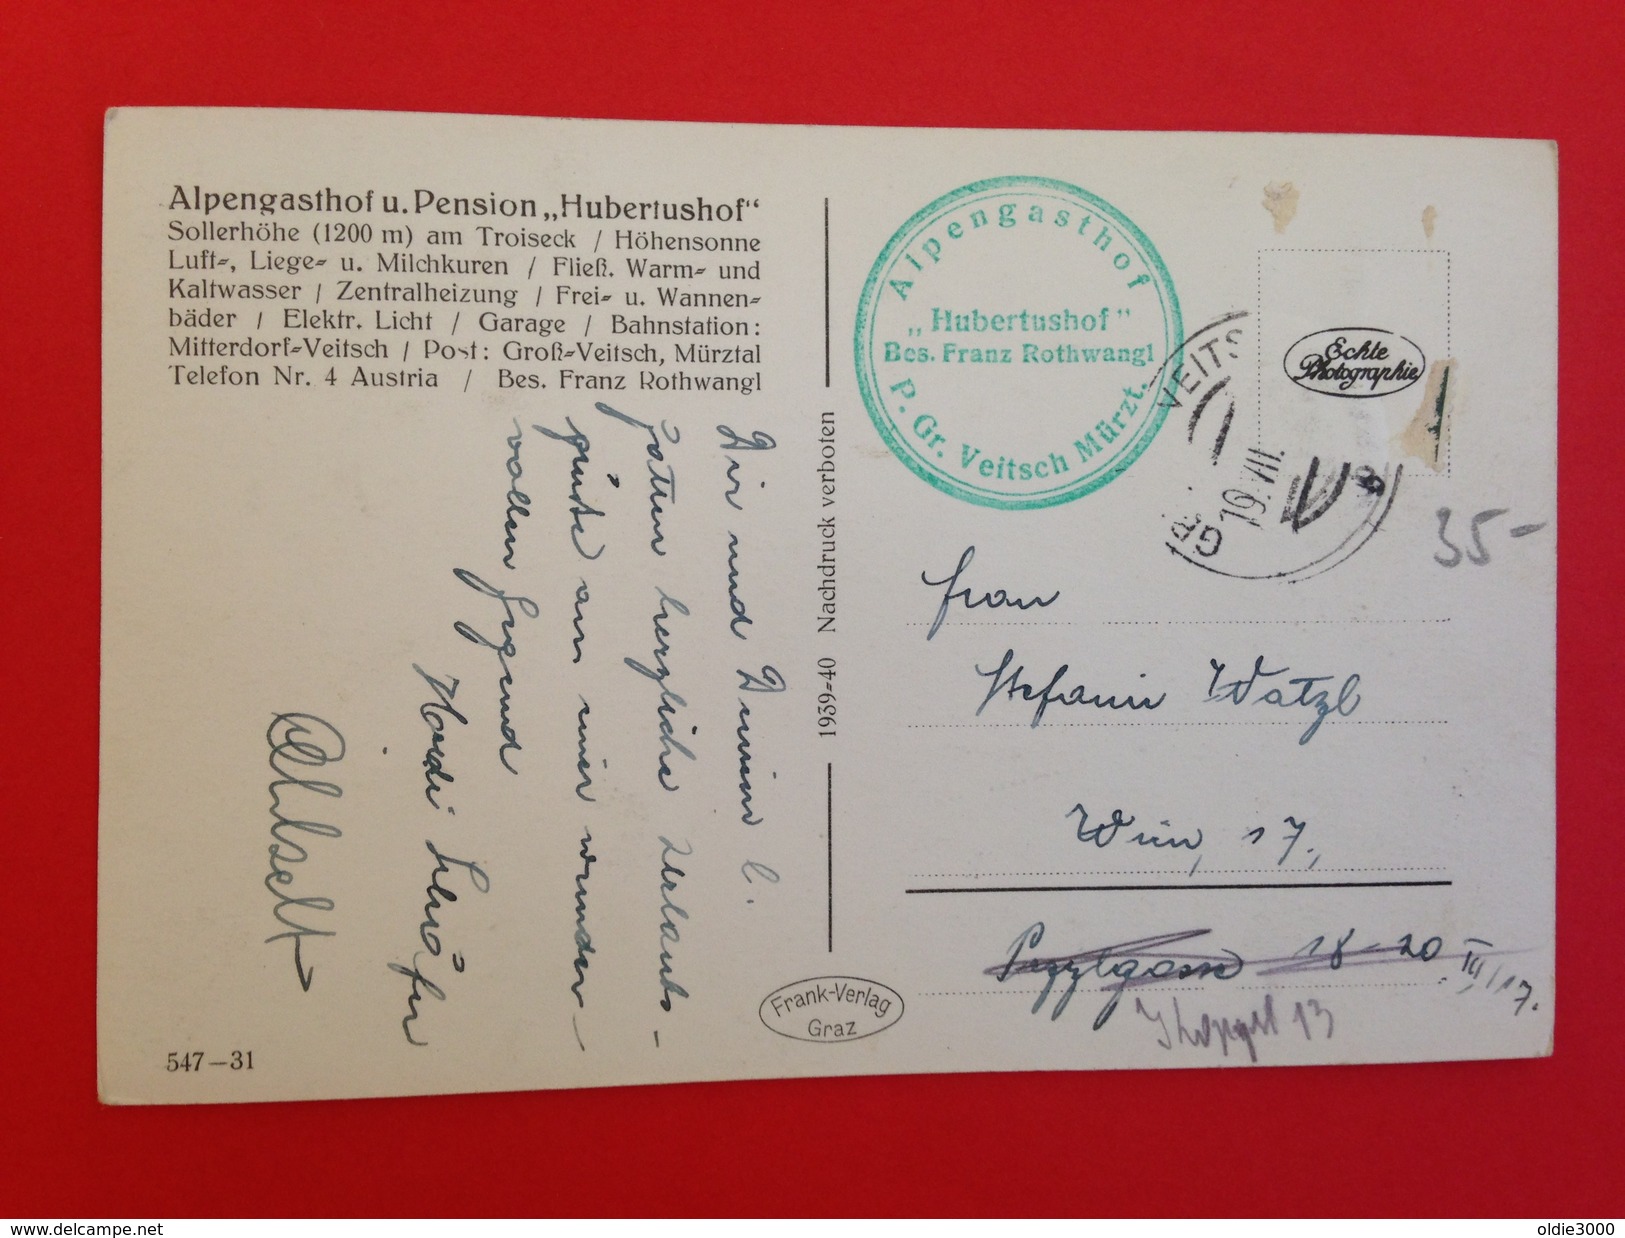 Alpengasthof u. Pension „Hubertushof“
Sollerhöhe (1200 m) am Troiseck / Höhensonne
Luft-, Liege- u. Milchkuren / Fließ. Warm- und
Kaltwasser / Zentralheizung / Frei- u. Wannen-
bäder / Elektr. Licht / Garage / Bahnstation:
Mitterdorf-Veitsch / Post: Groß-Veitsch, Mürztal
Telefon Nr. 4 Austria / Bes. Franz Rothwangl
Dir und Deinen l.
herzliche Urlaubs-
grüße aus einer wunder-
vollen Gegend
547-31
1939-40 Nachdruck verboten
Frank-Verlag
Graz
Alpengasthof
„Hubertushof”
Bes. Franz Rothwangl
P. Gr. Veitsch Mürzt.
VEITS
19. VII.
GR
Echte
Photographie
35-
Frau
Stefanie Watzl
Wien, 17.,
Pezzlgasse 18-20 III/17.
13
www.delcampe.net
oldie3000